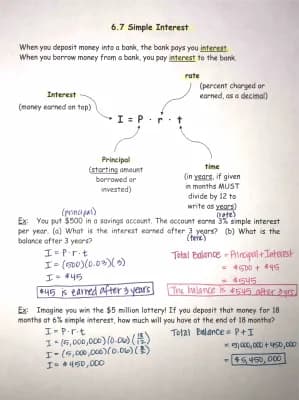 6.7 Simple Interest
When you deposit money into a bank, the bank pays you interest.
When you borrow money from a bank, you pay interest to the bank.
rate
(percent charged or
earned, as a decimal)
Interest
(money earned on top)
I = P · r · t
Principal
(starting amount
borrowed or
invested)
time
(in years, if given
in months MUST
divide by 12 to
write as years)
(principal) (rate)
Ex: You put $500 in a savings account. The account earns 3% simple interest
per year. (a) What is the interest earned after 3 years? (b) What is the
(time)
balance after 3 years?
I = P·r·t
I = (500)(0.03)(3)
I = $45
$45 is earned after 3 years
Total Balance = Principal + Interest
= $500 + $45
= $545
The balance is $545 after 3 yrs
Ex: Imagine you win the $5 million lottery! If you deposit that money for 18
months at 6% simple interest, how much will you have at the end of 18 months?
I = P·r·t
I = (5,000,000)(0.06)(18/12)
I = (5,000,000)(0.06)(3/2)
I = $450,000
Total Balance = P + I
= 5,000,000 + 450,000
= $5,450,000